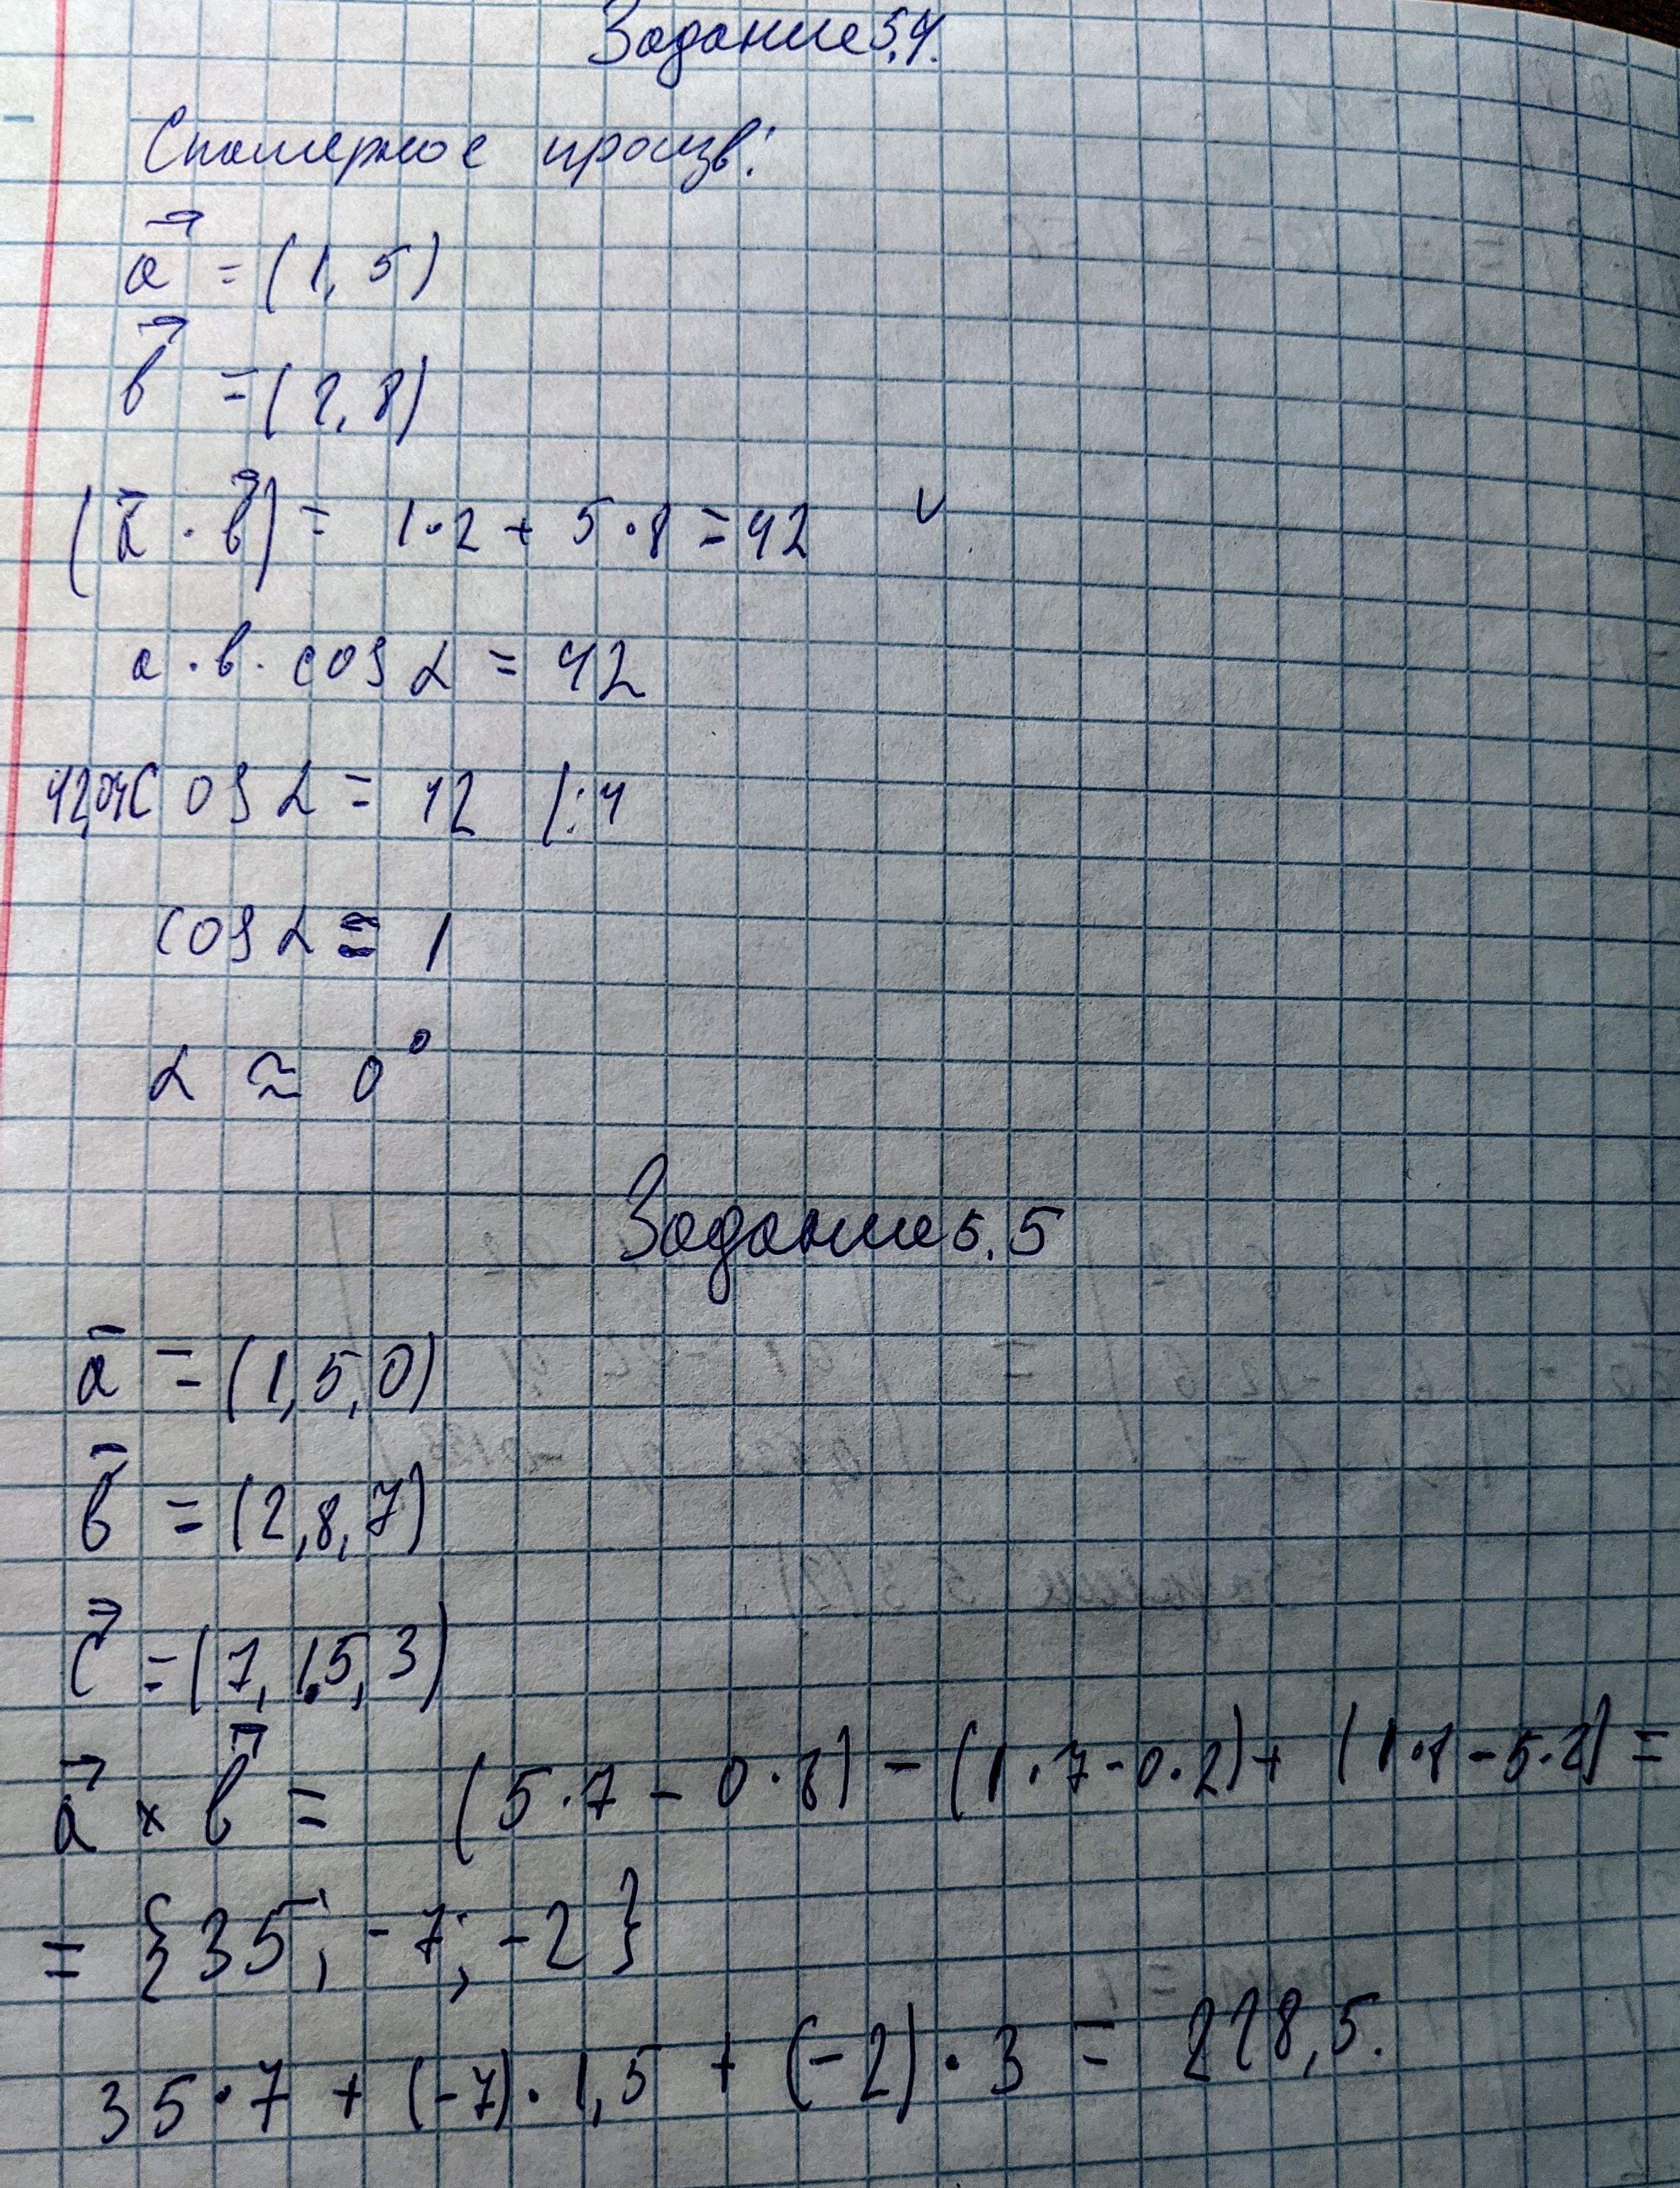 Задание 5.4.
Скалярное произв:
a⃗ = (1, 5)
b⃗ = (2, 8)
(a⃗ · b⃗) = 1·2 + 5·8 = 42
a · b · cos α = 42
42,04 cos α = 42 |:4
cos α ≈ 1
α ≈ 0°
Задание 5.5
a̅ = (1, 5, 0)
b̅ = (2, 8, 7)
c⃗ = (7, 1.5, 3)
a⃗ × b⃗ = (5·7 - 0·8) - (1·7 - 0·2) + (1·8 - 5·2) =
= {35; -7; -2}
35·7 + (-7)·1,5 + (-2)·3 = 228,5.